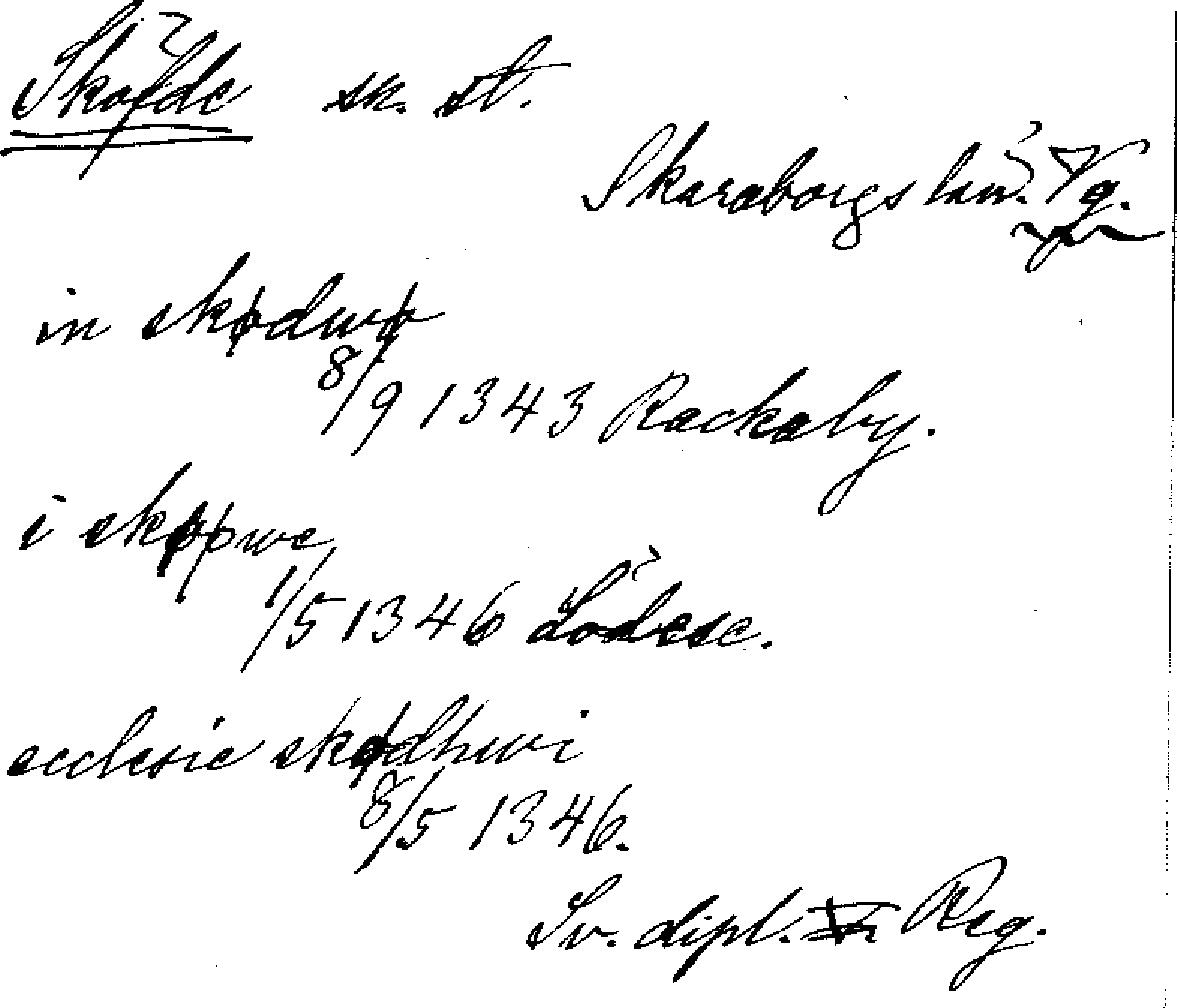 Sköfde sn. st.
Skaraborgs län. Vg.
in skødwø
8/9 1343 Rackaby.
i skøþwe
1/5 1346 Lödese.
ecclesie skødhwi
8/5 1346.
Sv. dipl. Reg.